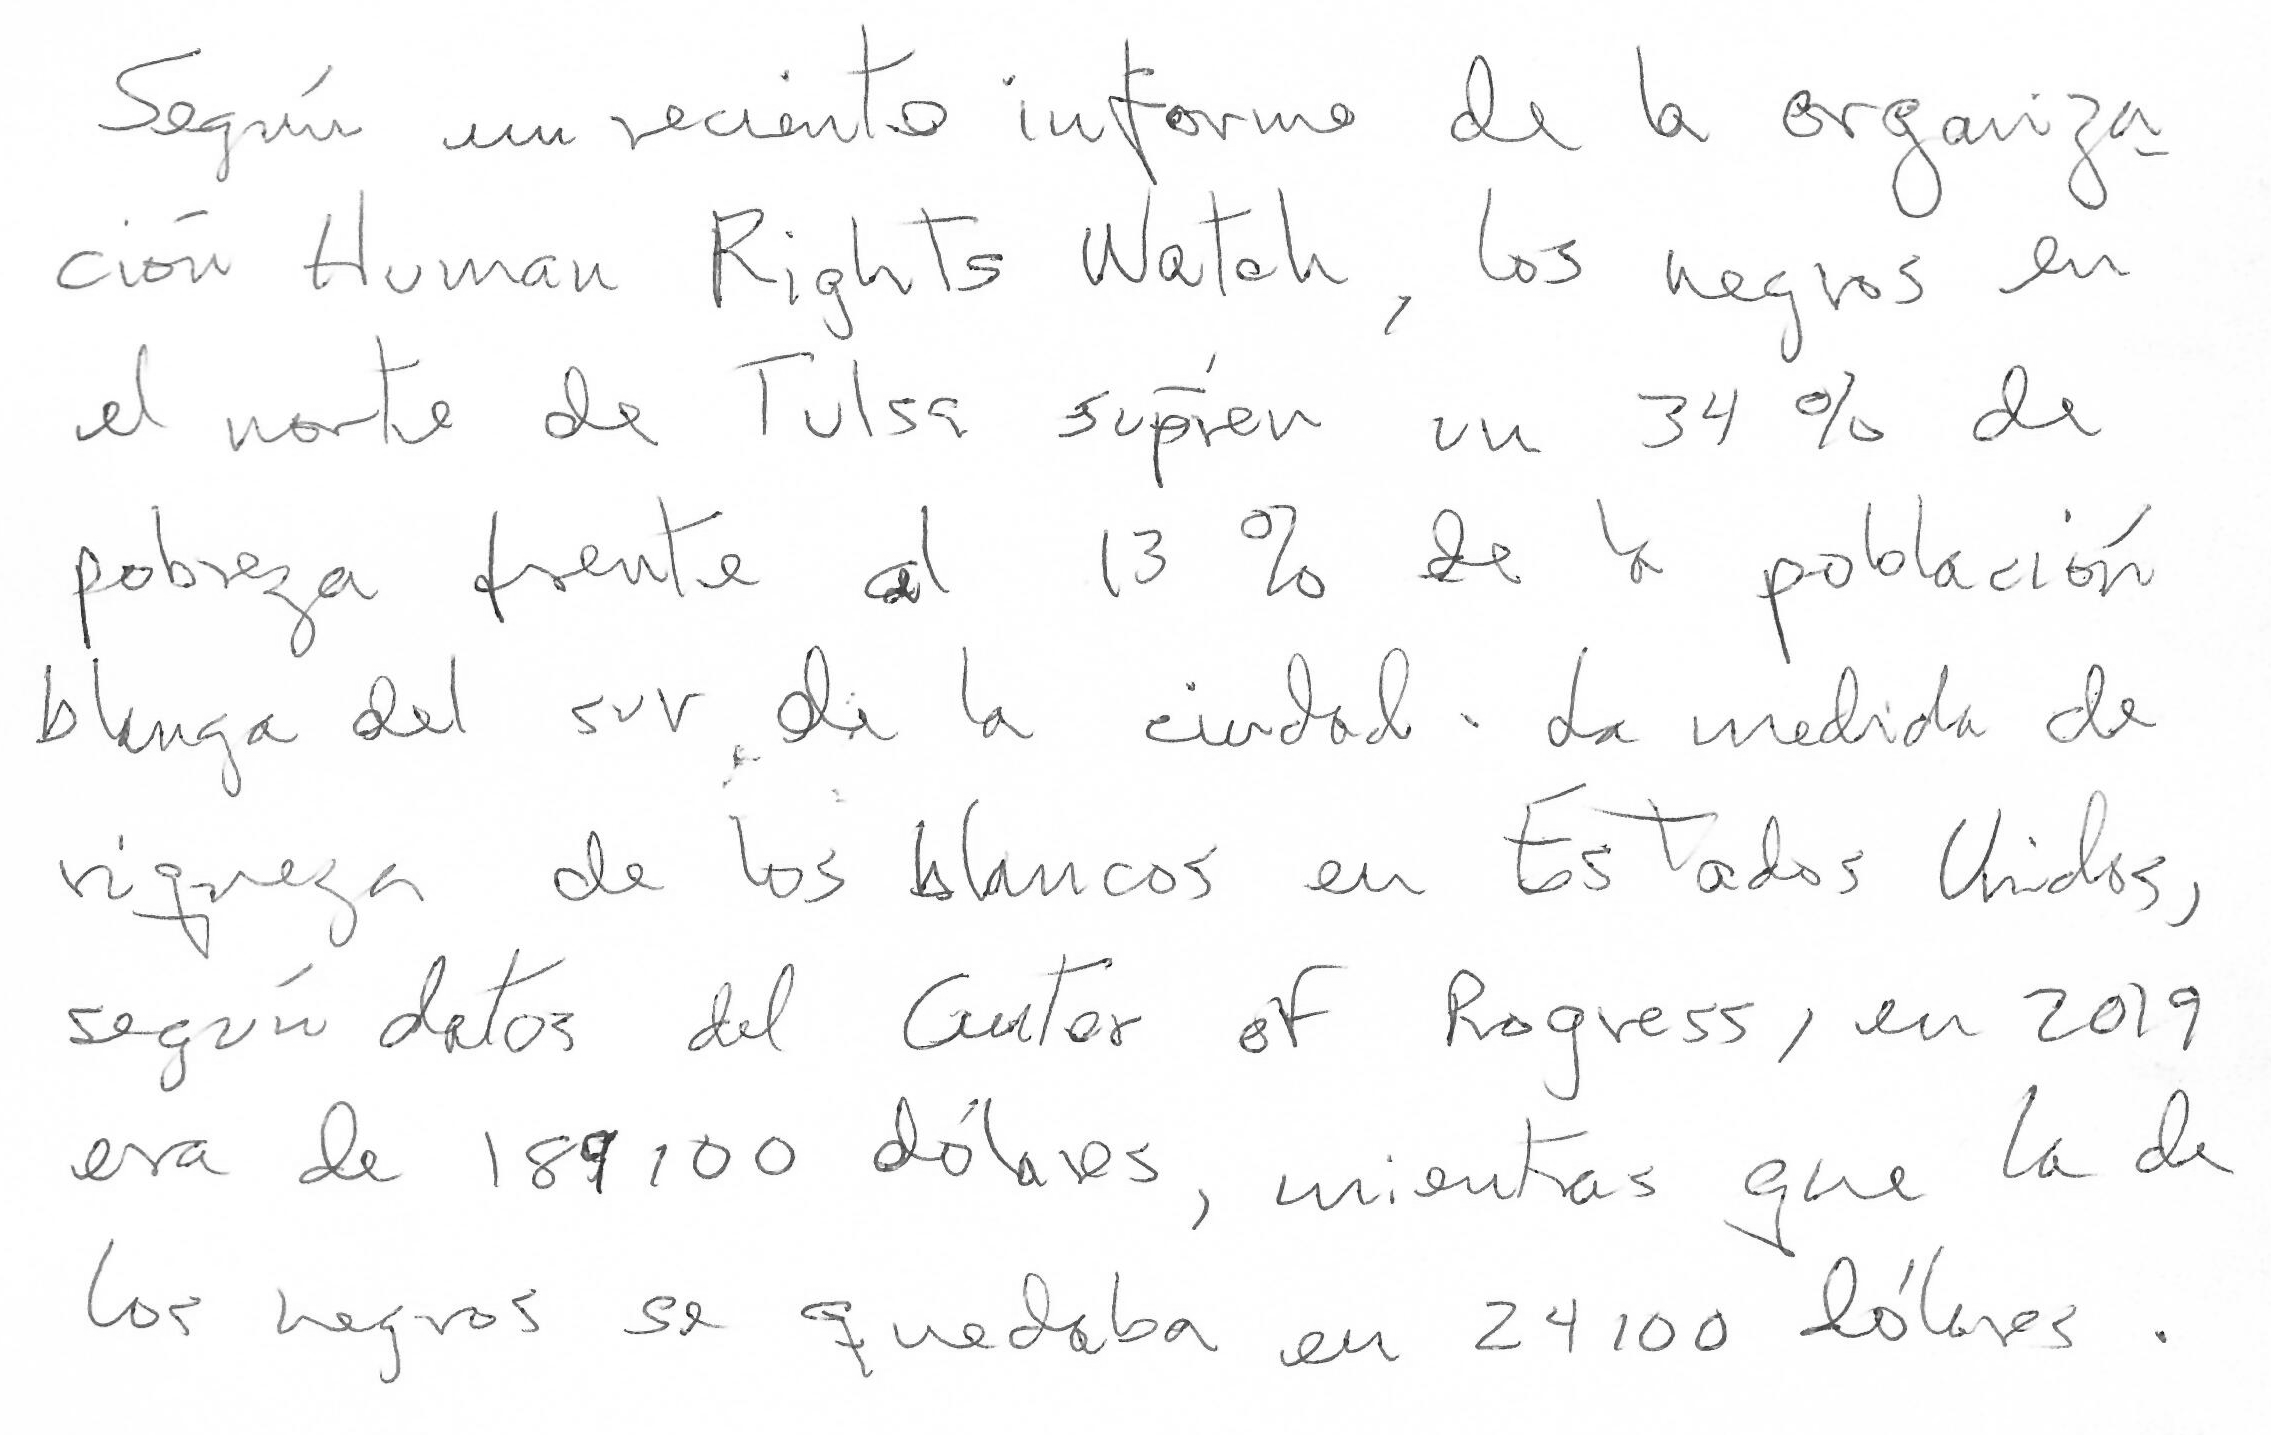 Según un reciente informe de la organiza-
ción Human Rights Watch, los negros en
el norte de Tulsa sufren un 34 % de
pobreza frente al 13 % de la población
blanca del sur de la ciudad. La medida de
riqueza de los blancos en Estados Unidos,
según datos del Center of Progress, en 2019
era de 189100 dólares, mientras que la de
los negros se quedaba en 24100 dólares.